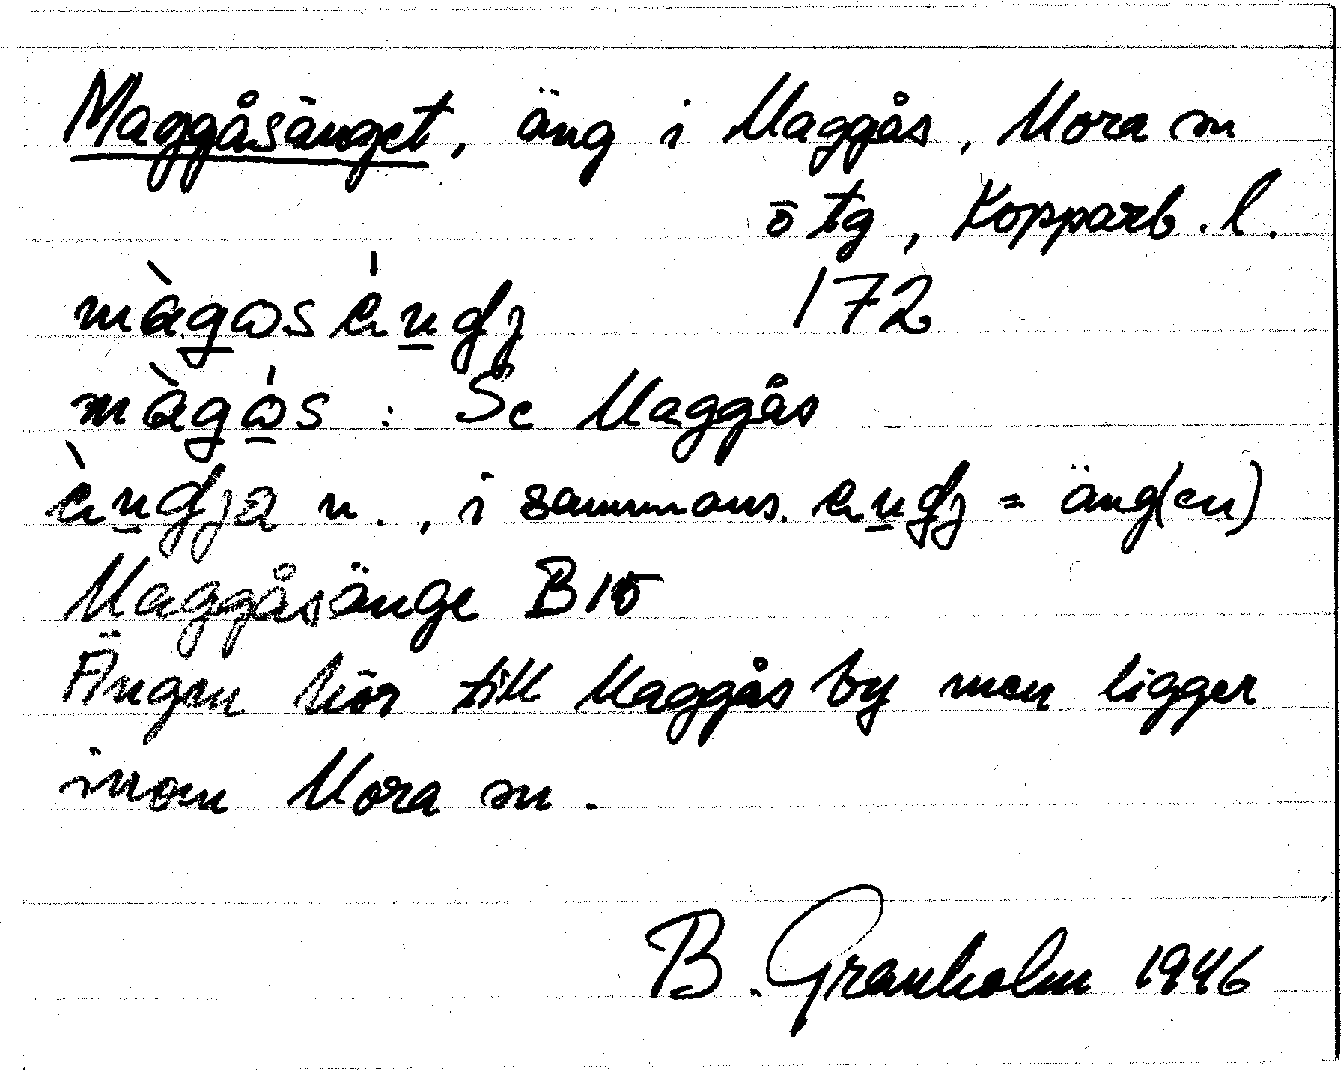 Maggåsänget, äng i Maggås, Mora sn
ö tg, Kopparb. l.
màgωsèṉdj 172
màgὼs : Se Maggås
èṉdja n., i sammans. eṉdj = äng(en)
Maggåsänge B15
Ängen hör till Maggås by men ligger
inom Mora sn.
B. Granholm 1946